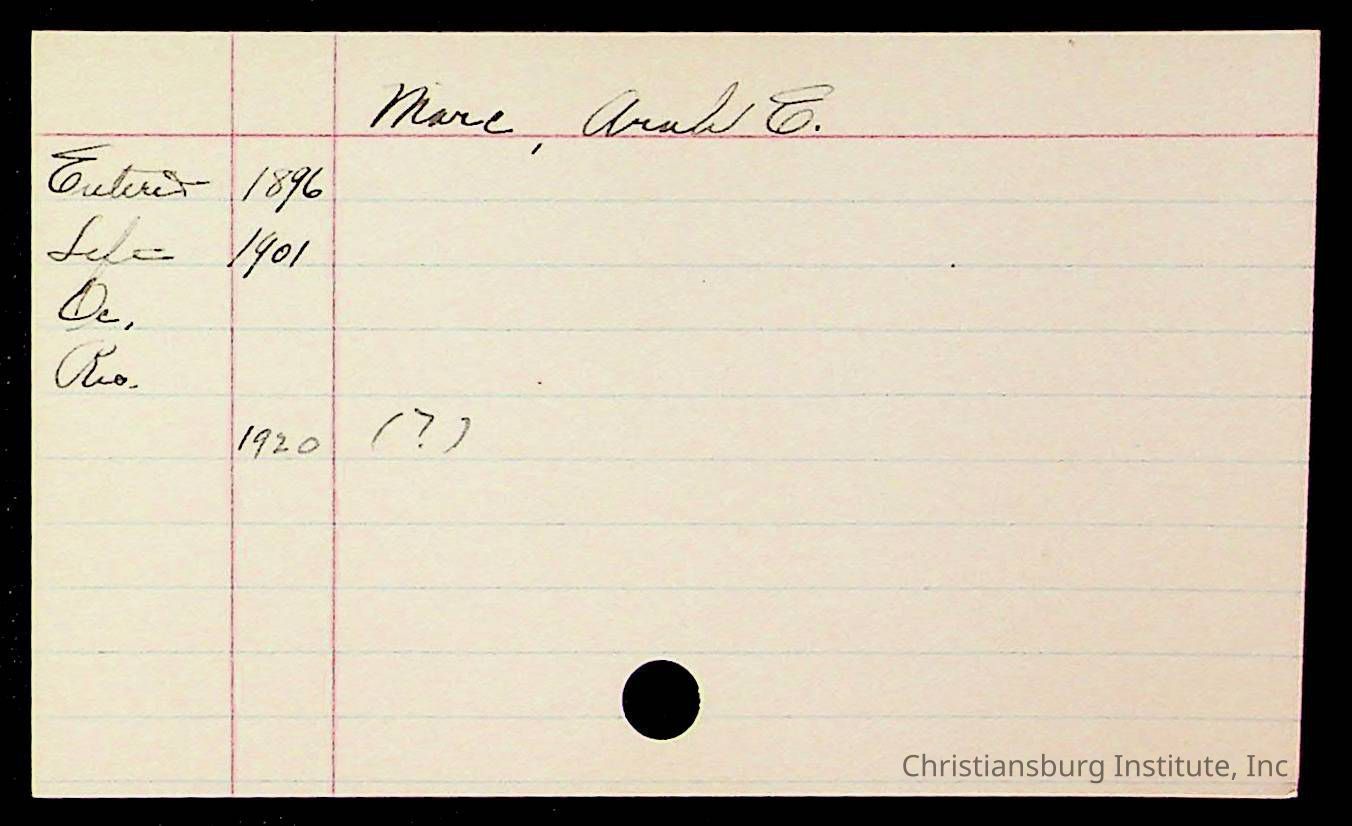 Marc, Arah E.
Entered 1896
Left 1901
Oc.
Res.
1920 (?)
Christiansburg Institute, Inc